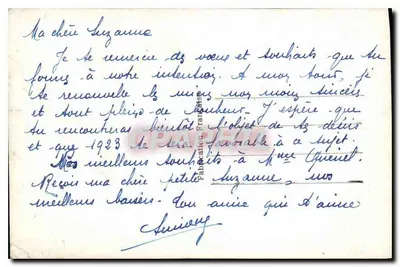 Ma chère Suzanne
Je te remercie des vœux et souhaits que tu
formes à notre intention. A mon tour, je
te renouvelle les miens non moins sincères
et tout pleins de bonheur. J'espère que
tu rencontreras bientôt l'objet de tes désirs
et que 1923 te sera favorable à ce sujet.
Mes meilleurs souhaits à Mme
Reçois ma chère petite Suzanne, nos
meilleurs baisers. Ton amie qui t'aime
Fabrication Française